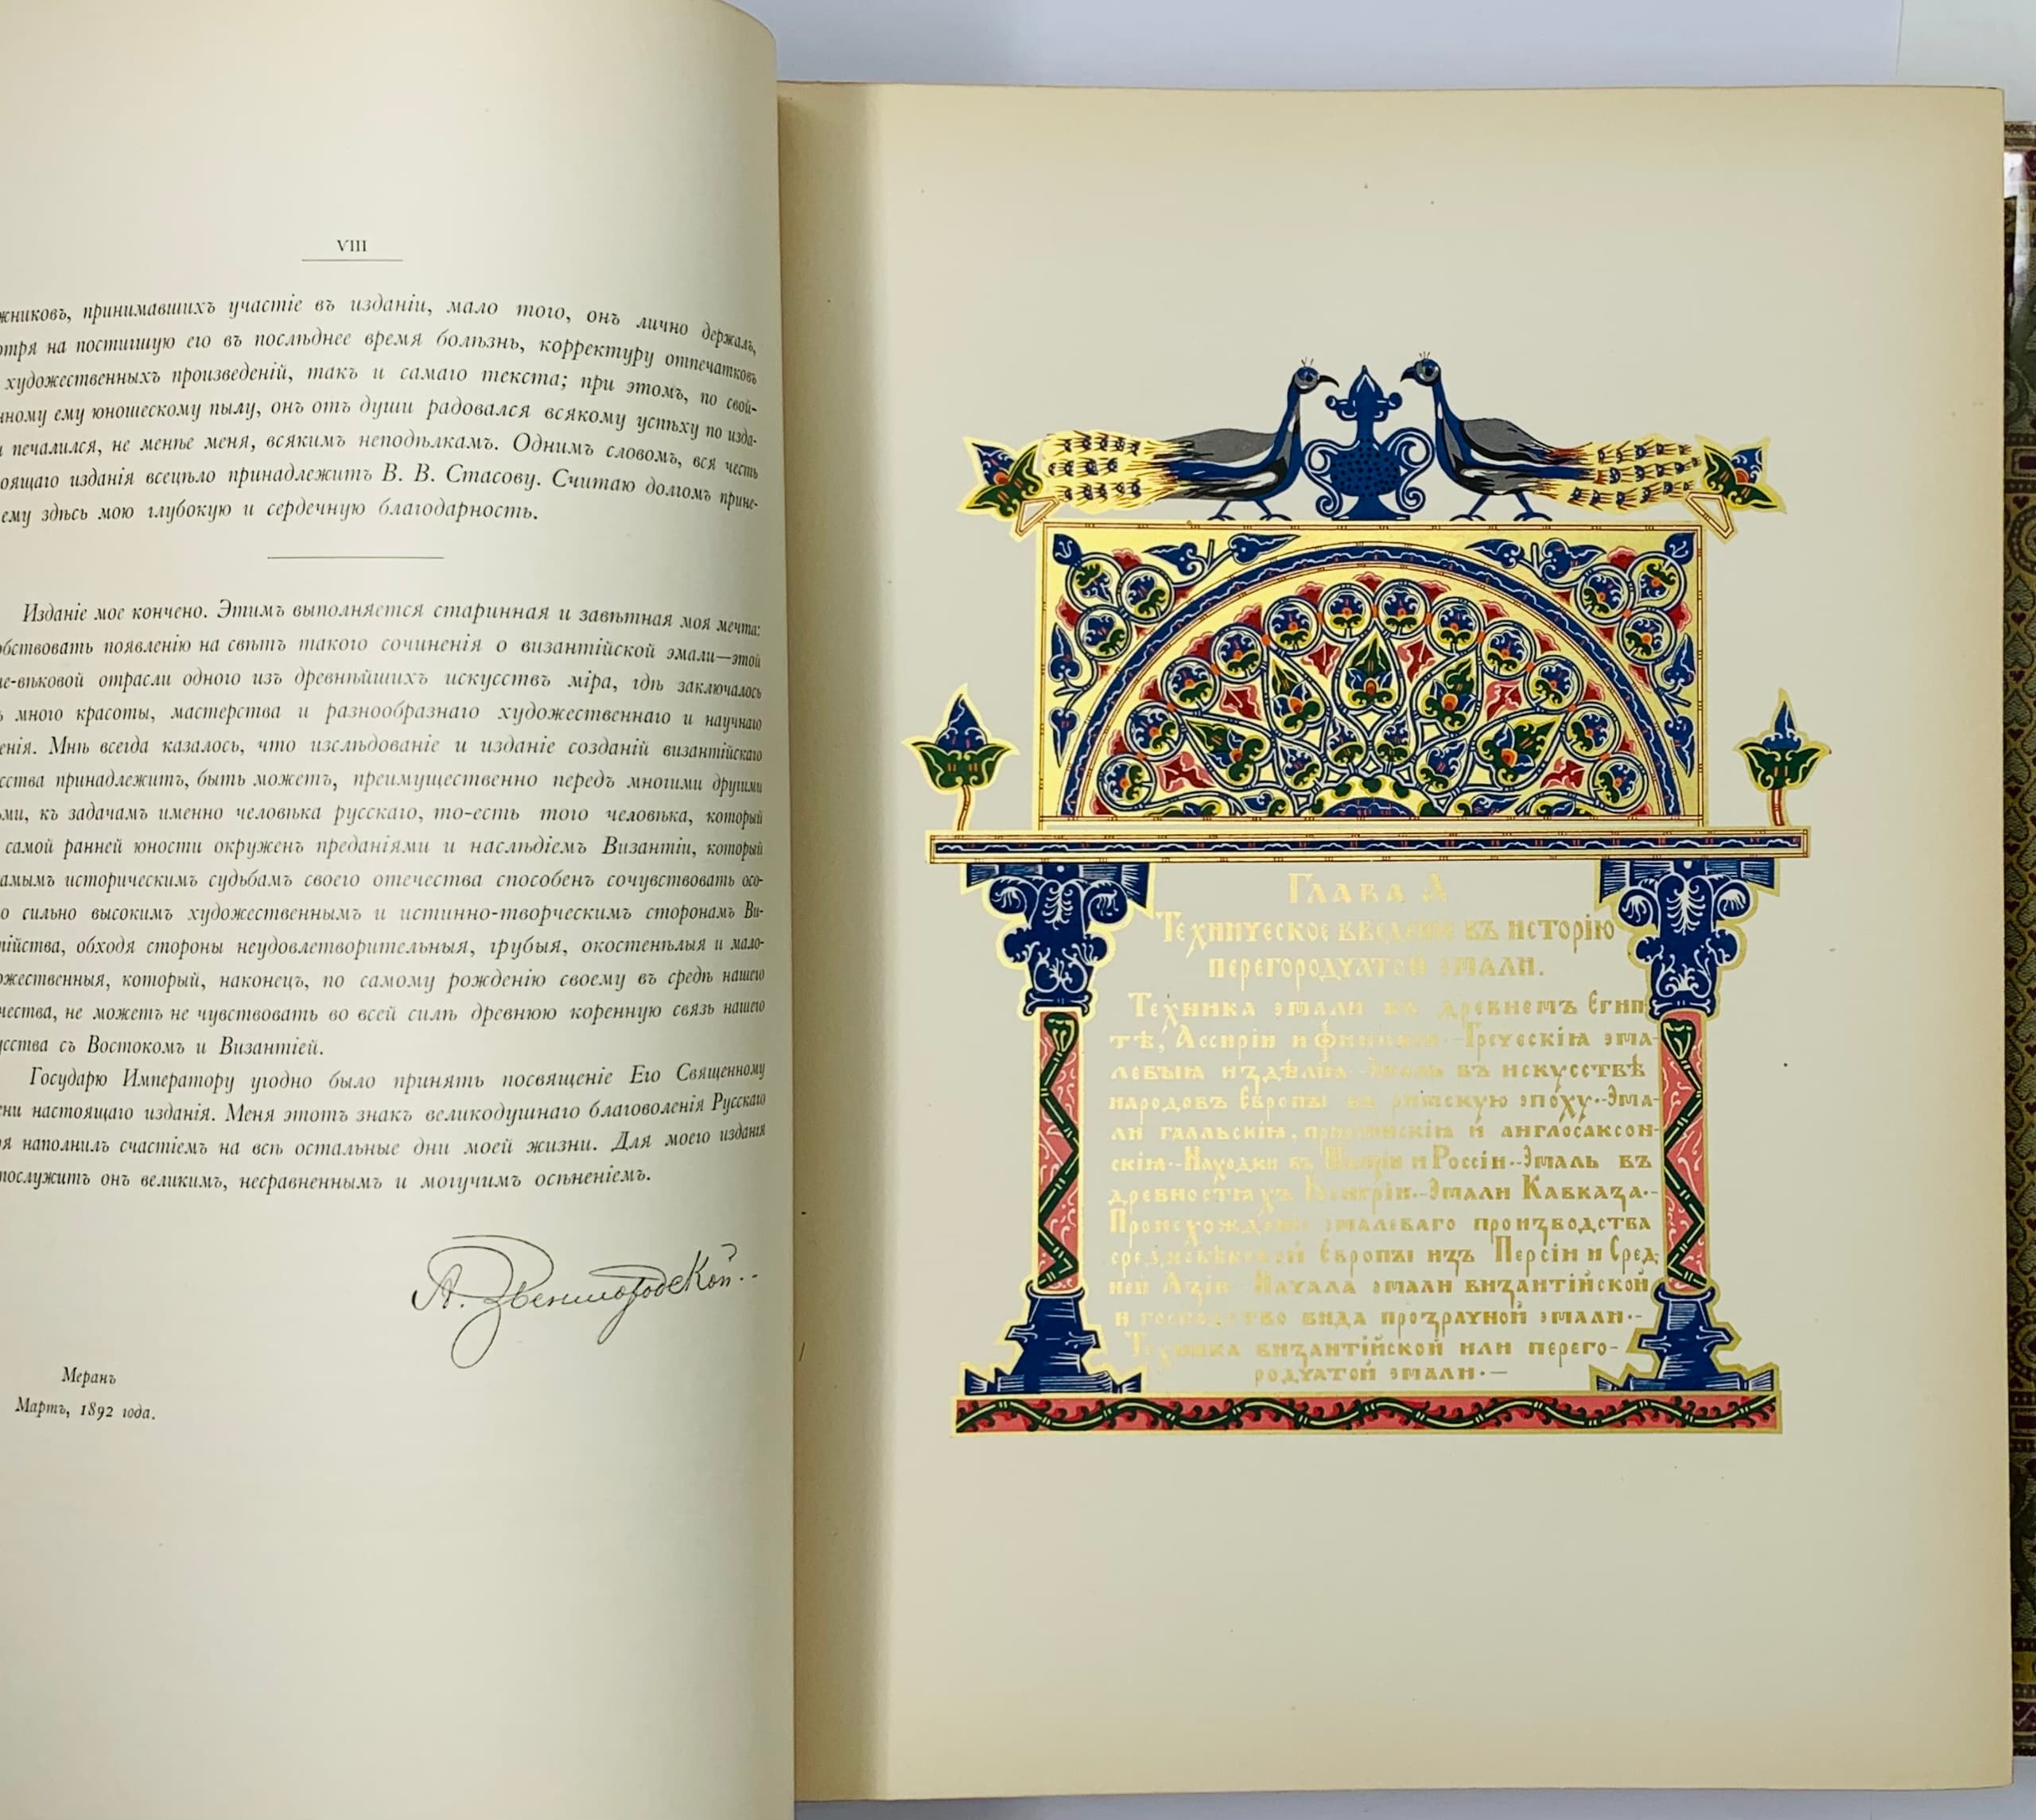 VIII
жниковъ, принимавшихъ участіе въ изданіи, мало того, онъ лично держалъ,
отря на постигшую его въ послѣднее время болѣзнь, корректуру отпечатковъ
художественныхъ произведеній, такъ и самаго текста; при этомъ, по свой-
нному ему юношескому пылу, онъ отъ души радовался всякому успѣху по изда-
и печалился, не менѣе меня, всякимъ неподѣлкамъ. Однимъ словомъ, вся честь
оящаго изданія всецѣло принадлежитъ В. В. Стасову. Считаю долгомъ прине-
ему здѣсь мою глубокую и сердечную благодарность.
Изданіе мое кончено. Этимъ выполняется старинная и завѣтная моя мечта:
обствовать появленію на свѣтъ такого сочиненія о византійской эмали—этой
не-вѣковой отрасли одного изъ древнѣйшихъ искусствъ міра, гдѣ заключалось
ь много красоты, мастерства и разнообразнаго художественнаго и научнаго
енія. Мнѣ всегда казалось, что изслѣдованіе и изданіе созданій византійскаго
сства принадлежитъ, быть можетъ, преимущественно передъ многими другими
ми, къ задачамъ именно человѣка русскаго, то-есть того человѣка, который
самой ранней юности окруженъ преданіями и наслѣдіемъ Византіи, который
амымъ историческимъ судьбамъ своего отечества способенъ сочувствовать осо-
о сильно высокимъ художественнымъ и истинно-творческимъ сторонамъ Ви-
тійства, обходя стороны неудовлетворительныя, грубыя, окостенѣлыя и мало-
ожественныя, который, наконецъ, по самому рожденію своему въ средѣ нашего
чества, не можетъ не чувствовать во всей силѣ древнюю коренную связь нашего
усства съ Востокомъ и Византіей.
Государю Императору угодно было принять посвященіе Его Священному
ени настоящаго изданія. Меня этотъ знакъ великодушнаго благоволенія Русскаго
я наполнилъ счастіемъ на всѣ остальные дни моей жизни. Для моего изданія
послужитъ онъ великимъ, несравненнымъ и могучимъ осѣненіемъ.
А. Звенигородской
Меранъ
Мартъ, 1892 года.
Глава А
Техническое введеніе въ исторію
перегородчатой эмали.
Техника эмали въ древнемъ Егип-
тѣ, Ассиріи и Финикіи.-Греческія эма-
левыя издѣлія.-Эмаль въ искусствѣ
народовъ Европы въ римскую эпоху.-Эма-
ли галльскія, прирейнскія и англосаксон-
скія.-Находки въ и Россіи.-Эмаль въ
древностяхъ Венгріи.-Эмали Кавказа.-
Происхожденіе эмалеваго производства
средневѣковой Европы изъ Персіи и Сред-
ней Азіи.-Начала эмали византійской
и господство вида прозрачной эмали.-
Техника византійской или перего-
родчатой эмали.-